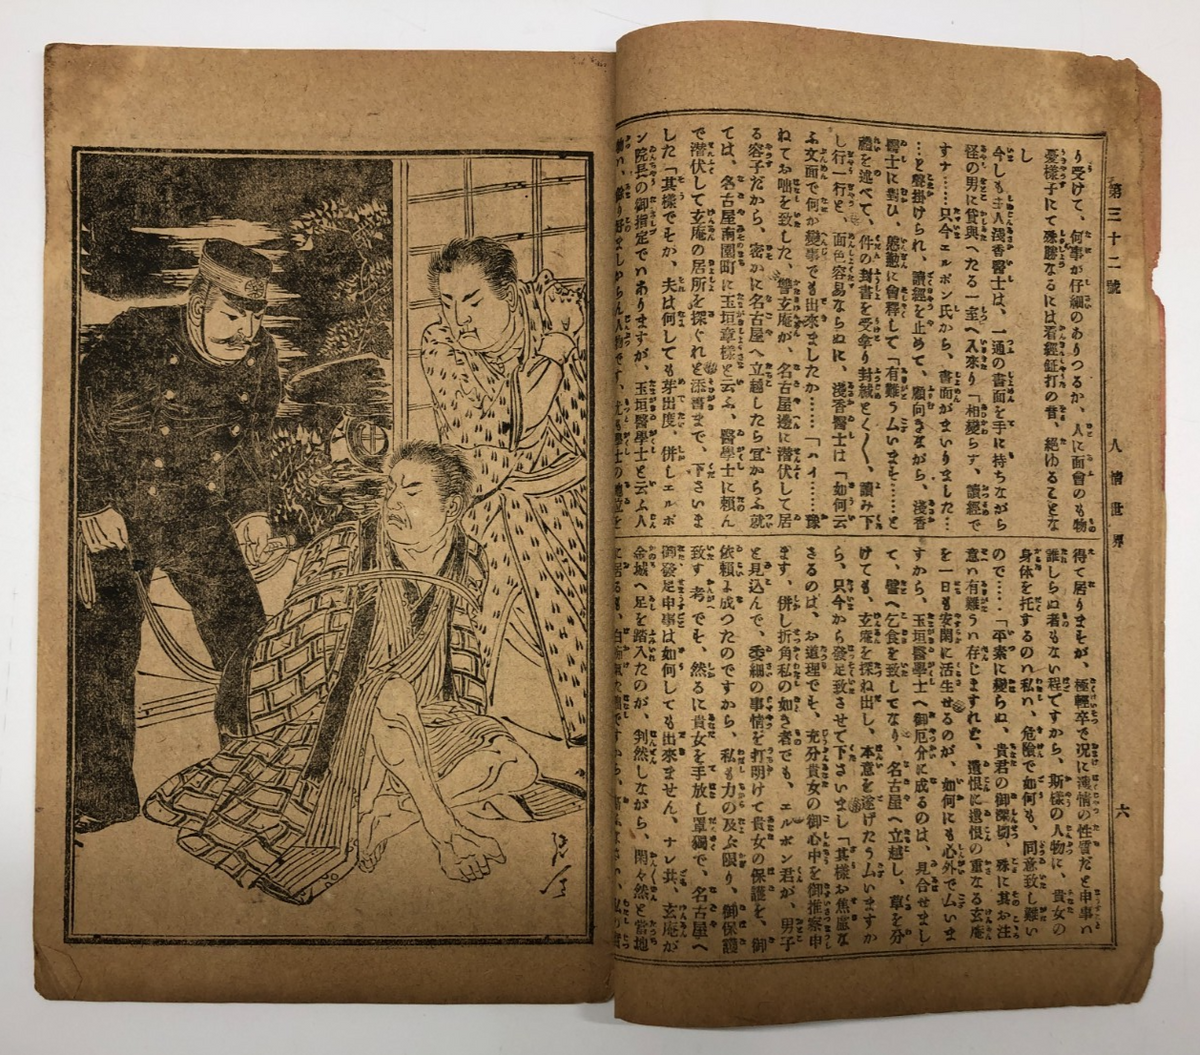 第三十二號
人情世界
六
り受けて、何事か仔細のありつるか、人に面會のも物
憂樣子にて殊勝なるには看經鉦打の昔、絕ゆることな
し
今しも主人淺香醫士は、一通の書面を手に持ちながら
怪の男に貸與へたる一室へ入來り「相變らず、讀經で
すナ……只今エルボン氏から、書面がまいりました…
…と聲掛けられ、讀經を止めて、顧向きながら、淺香
醫士に對ひ、慇懃に會釋して「有難う厶います……と
禮を述べて、件の封書を受拿り封械とく〱、讀み下
し行一行と、面色容易ならぬに、淺香醫士は「如何云
ふ文面で何か變事でも出來ましたか……「ハイ……豫
ねてお咄を致した、讐玄庵が、名古屋邊に潜伏して居
る容子だから、密かに名古屋へ立越したら宜からふ就
ては、名古屋南園町に玉垣章樣と云ふ、醫學士に賴ん
で潜伏して玄庵の居所を探ぐれと添書まで、下さいま
した「其樣でそか、夫は何しても芽出度、併しエルボ
ン院長の御指定でハありますが、玉垣醫學士と云ふ人
得て居りまそが、極輕卒で況に濁情の性質だと申事ハ
誰しらぬ者もない程ですから、斯樣の人物に、貴女の
身体を托するのハ私ハ、危險で如何も、同意致し難い
ので……「平素に變らぬ、貴君の御深切、殊に其お注
意ハ有難う存じますれど、遺恨に遺恨の重なる玄庵
を一日も安閑に活生せるのが、如何にも心外で厶いま
すから、玉垣醫學士へ御厄分に成るのは、見合せまし
て、譬へ乞食を致してなり、名古屋へ立越し、草を分
けても、玄庵を探ね出し、本意を遂げたう厶いますか
ら、只今から發足致させて下さいまし「其樣お焦慮な
さるのは、お道理でそ、充分貴女の御心中を御推察申
ます、併し折角私の如き者でも、エルボン君が、男子
と見込んで、委細の事情を打明けて貴女の保護を、御
依賴よ成つたのですから、私も力の及ぶ限り、御保護
致す考でそ、然るに貴女を手放し單獨で、名古屋へ
御發足申事は如何しても出來ません、ナレ共、玄庵が
金城へ足を踏入たのが、判然しながら、閑々然と當地